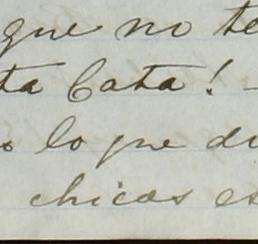 que no te
ta Cata! -
o lo que di
chicas es